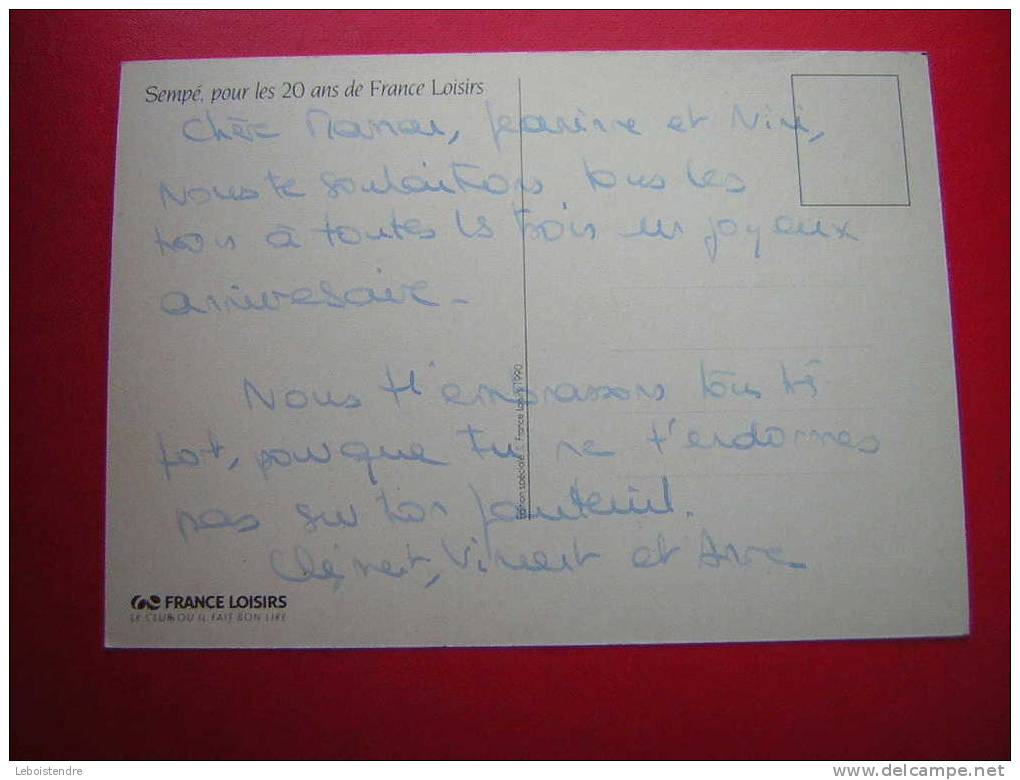 Sempé, pour les 20 ans de France Loisirs
Chère Maman, Jeanine et Nini,
Nous te souhaitons tous les
trois à toutes les trois un joyeux
anniversaire.
Nous t'embrassons tous très
fort, pour que tu ne t'endormes
pas sur ton fauteuil.
Clément, Vincent et Anne
Edition spéciale © France Loisirs 1990
FRANCE LOISIRS
LE CLUB OU IL FAIT BON LIRE
Leboistendre
delcampe.net